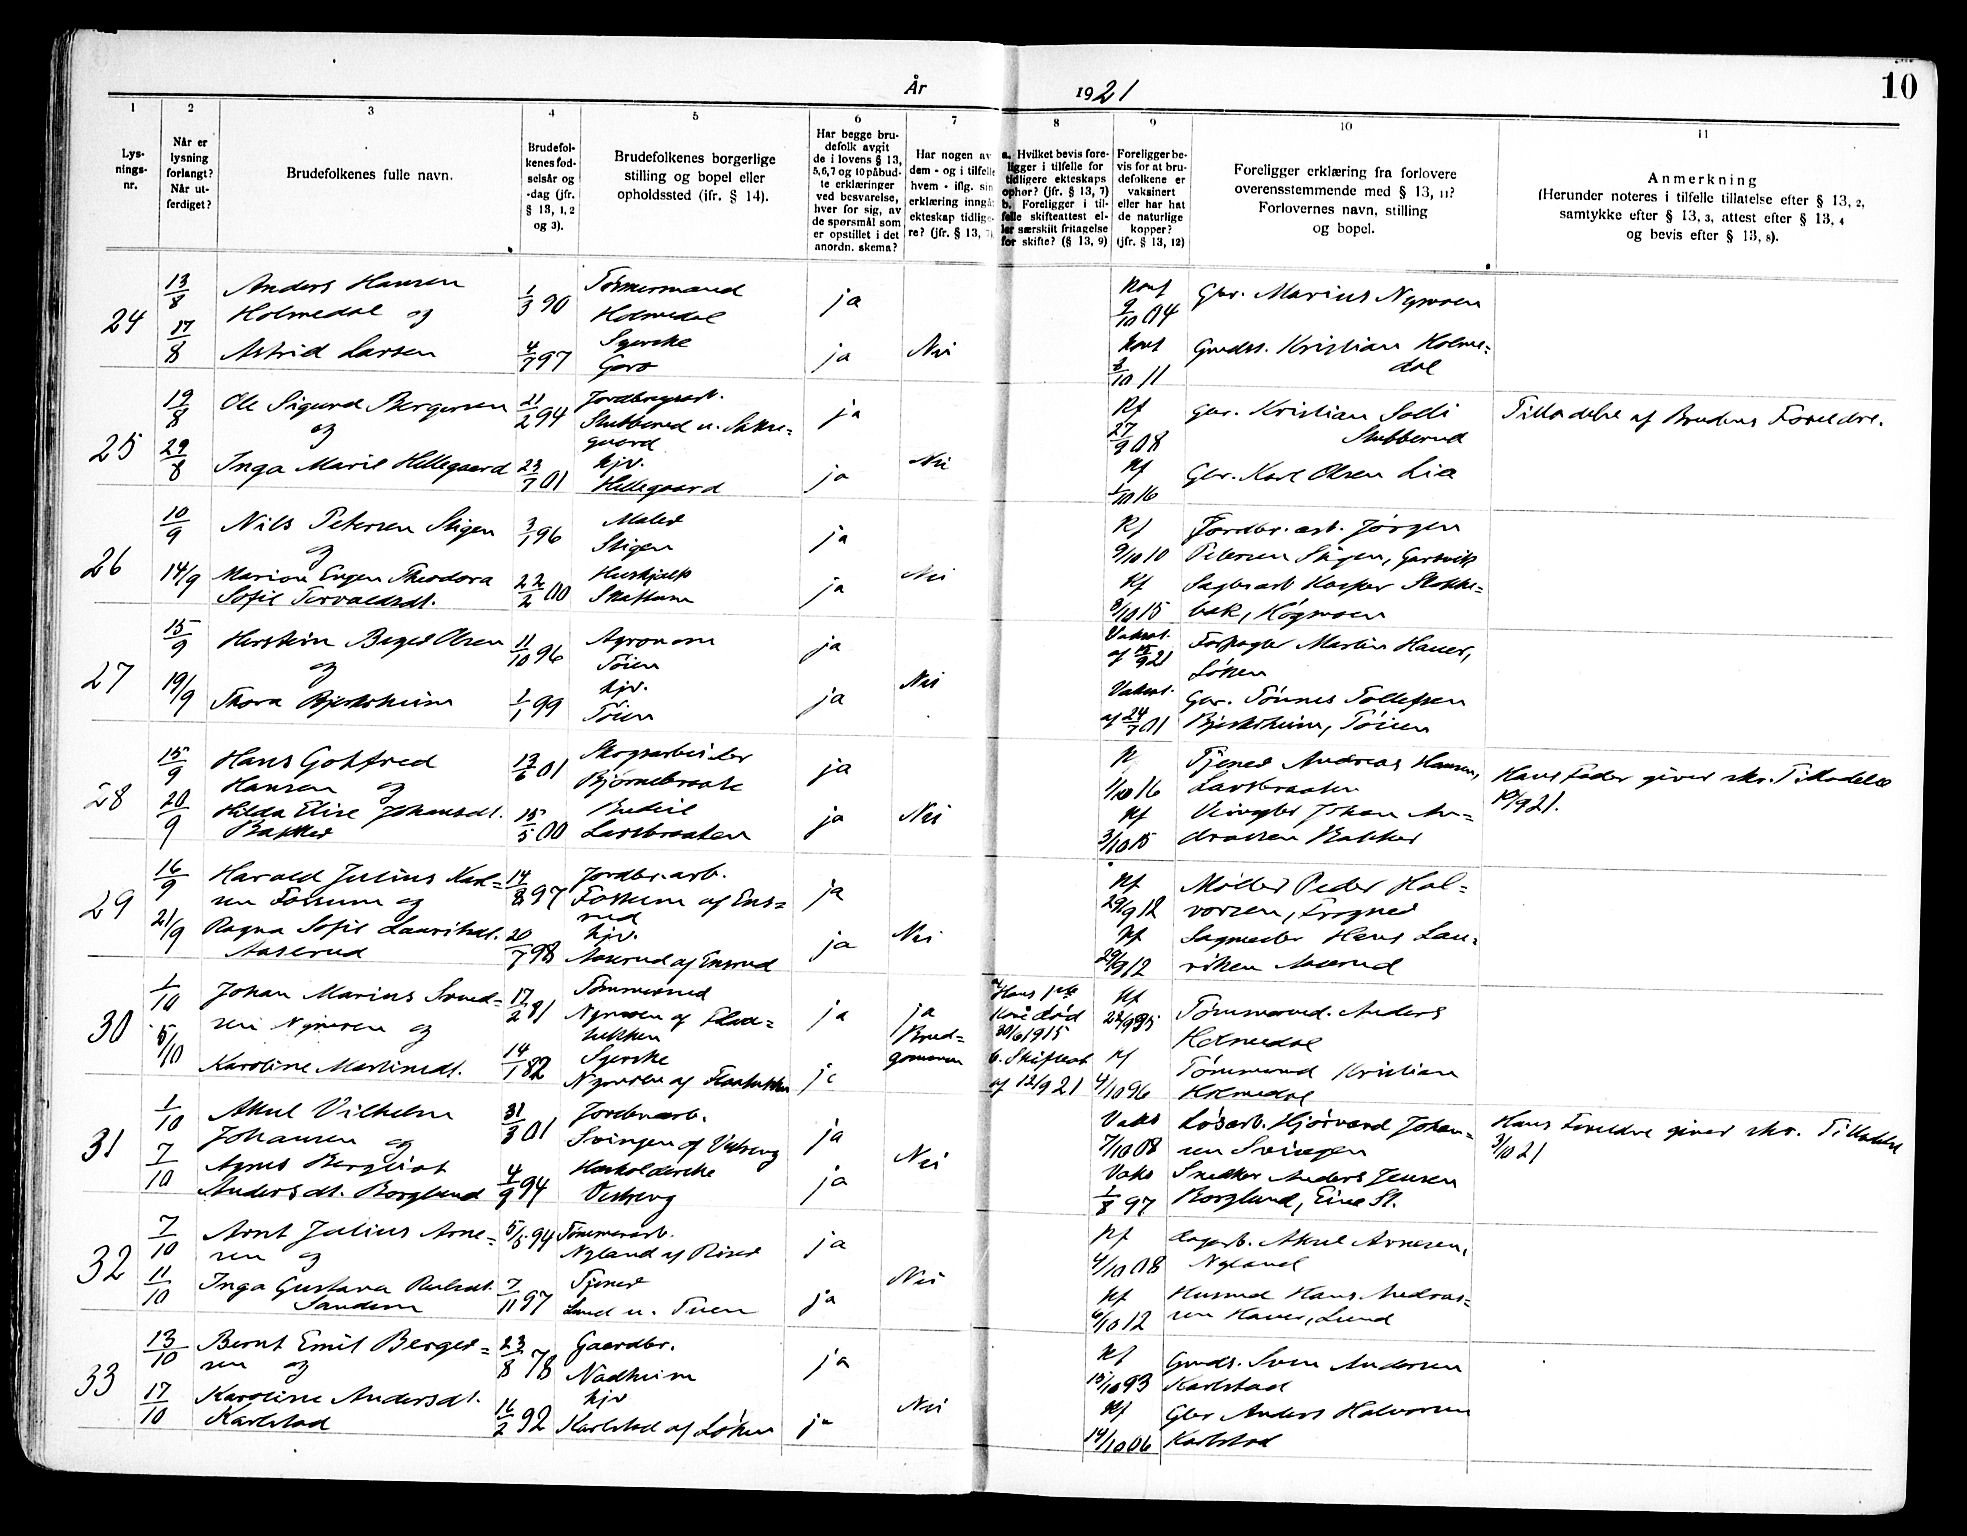 10
År 1921
1 2 3 4 5 6 7 8 9 10 11
Lys-
nings-
nr.
Når er
lysning
forlangt?
Når ut-
ferdiget?
Brudefolkenes fulle navn.
Brudefol-
kenes fød-
selsår og
-dag (jfr.
§ 13, 1, 2
og 3).
Brudefolkenes borgerlige
stilling og bopel eller
opholdssted (ifr. § 14).
Har begge bru-
defolk avgit
de i lovens § 13,
5,6,7 og 10 påbud-
te erklæringer
ved besvarelse,
hver for sig, av
de spørsmål som
er opstillet i det
anordn. skema?
Har nogen av
dem - og i tilfelle
hvem - iflg. sin
erklæring inngåt
ekteskap tidlige-
re? (jfr. § 13, 7)
a. Hvilket bevis fore-
ligger i tilfelle for
tidligere ekteskaps
ophør? (jfr. § 13, 7)
b. Foreligger i til-
felle skifteattest el-
ler særskilt fritagelse
for skifte? (§ 13, 9)
Foreligger be-
vis for at bru-
defolkene er
vaksinert
eller har hat
de naturlige
kopper?
(jfr. § 13, 12)
Foreligger erklæring fra forlovere
overensstemmende med § 13, 11?
Forlovernes navn, stilling
og bopel.
Anmerkning
(Herunder noteres i tilfelle tillatelse efter § 13, 2,
samtykke efter § 13, 3, attest efter § 13, 4
og bevis efter § 13, 8).
24
13/8
17/8
Anders Hansen
Holmedal og
Astrid Larsen
1/3 90
4/7 97
Tømmermand
Holmedal
Syerske
ja
ja
Nei
9/10 04
2/10 11
Gbr. Marius Nymoen
Gmds. Kristian Holme-
dal
25
19/8
29/8
Ole Sigurd Bergersen
og
Inga Marie Hellegaard
21/2 94
23/7 01
Stubberud u. Sakse-
gaard
hjv.
Hellegaard
ja
ja
Nei
Kf
27/9 08
Kf
1/10 16
Gbr. Kristian
Stubberud
Gbr. Karl Olsen Lia
Tilladelse af Brudens Foreldre.
26
10/9
14/9
Nils Petersen Stigen
og
Marion Eugen Theodora
Sofie Torvaldsdt.
3/1 96
22/2 00
Maler
Stigen
Hushjelp
ja
ja
Nei
Kf
9/10 10
Kf
3/10 15
Jordbr. arb. Jørgen
Petersen Stigen,
Sagbrarb Kasper Stokke-
bæk, Høgmoen
27
15/9
19/9
Herstein Berger Olsen
og
Thora Bjerksheim
11/10 96
1/1 99
Agronom
Töien
hjv.
Töien
ja
ja
Nei
Vaksat.
af 15/9 21
Vaksat.
af 24/7 01
Forpagter Martin Haner,
Löken
Gbr. Tönnes Tollefsen
Bjerksheim, Töien
28
15/9
20/9
Hans Gotfred
Hansen og
Hilda Elise Johansdt.
Bakker
13/6 01
15/5 00
Skogsarbeider
Bjørnebraate
Budeie
Larsbraaten
ja
ja
Nei
K
1/10 16
Kf
3/10 15
Tjener Andreas Hansen,
Larsbraaten
Johan An-
dreassen Bakker
Hans Fader giver skr. Tilladelse
19/9 21.
29
16/9
21/9
Harald Julius Karl-
sen Fossum og
Ragna Sofie Lauritsdt.
Aaserud
14/8 97
20/7 98
Jordbr. arb.
Fossum af Ens-
rud
hjv.
Aaserud af Ensrud
ja
ja
Nei
Kf
29/9 12
Kf
29/9 12
Møller Peder Hal-
vorsen, Frogner
Sagmester Hans Lau-
ritsen Aaserud
30
1/10
5/10
Johan Marius Svend-
sen Nymoen og
Karoline Martinsdt.
17/2 81
14/1 82
Tømmermd
Nymoen af Flaa-
tukken
Syerske
Nymoen af Flaatukken
ja
ja
ja
Brud-
gommen
a. Hans 1ste
Kone død
30/6 1915
b. Skifteat
af 12/9 21
Kf
Kf
4/10 96
Tømmermd. Anders
Holmedal
Tømmermd Kristian
Holmedal
31
1/10
7/10
Aksel Vilhelm
Johansen og
Agnes Bergliot
Andersdt. Borglund
31/3 01
4/9 94
Jordbrarb.
Svingen af Visberg
Husholderske
Visberg
ja
ja
Nei
Vaks
7/10 08
Vaks
1/8 97
Løsarb. Hjørvard Johan-
sen Svingen
Snedker Anders Jensen
Borglund, Eina St.
Hans Foreldre giver skr. Tilladelse
3/10 21
32
7/10
11/10
Arnt Julius Arne-
sen og
Inga Gustava
Sandem
5/5 94
7/11 97
Tømmerarb.
Nyland af Riser
Tjener
Lund u. Tuen
ja
ja
Nei
Kf
4/10 08
Kf
6/10 12
Dagarb. Aksel Arnesen,
Nyland
Husmd Hans Andreas-
sen Haner, Lund
33
13/10
17/10
Bernt Emil Berger-
sen og
Karoline Andersdt.
Karlstad
23/8 78
16/2 92
Gaardbr.
Nadheim
hjv
Karlstad af Løken
ja
ja
Nei
Kf
15/10 93
Kf
14/10 06
Gmds. Sven Andersen
Karlstad
Gbr Anders Halvorsen
Karlstad